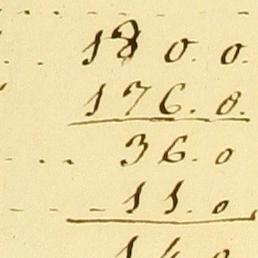 . . . 180. 0.
176. 0.
. . . 36. 0
- - - 11. 0